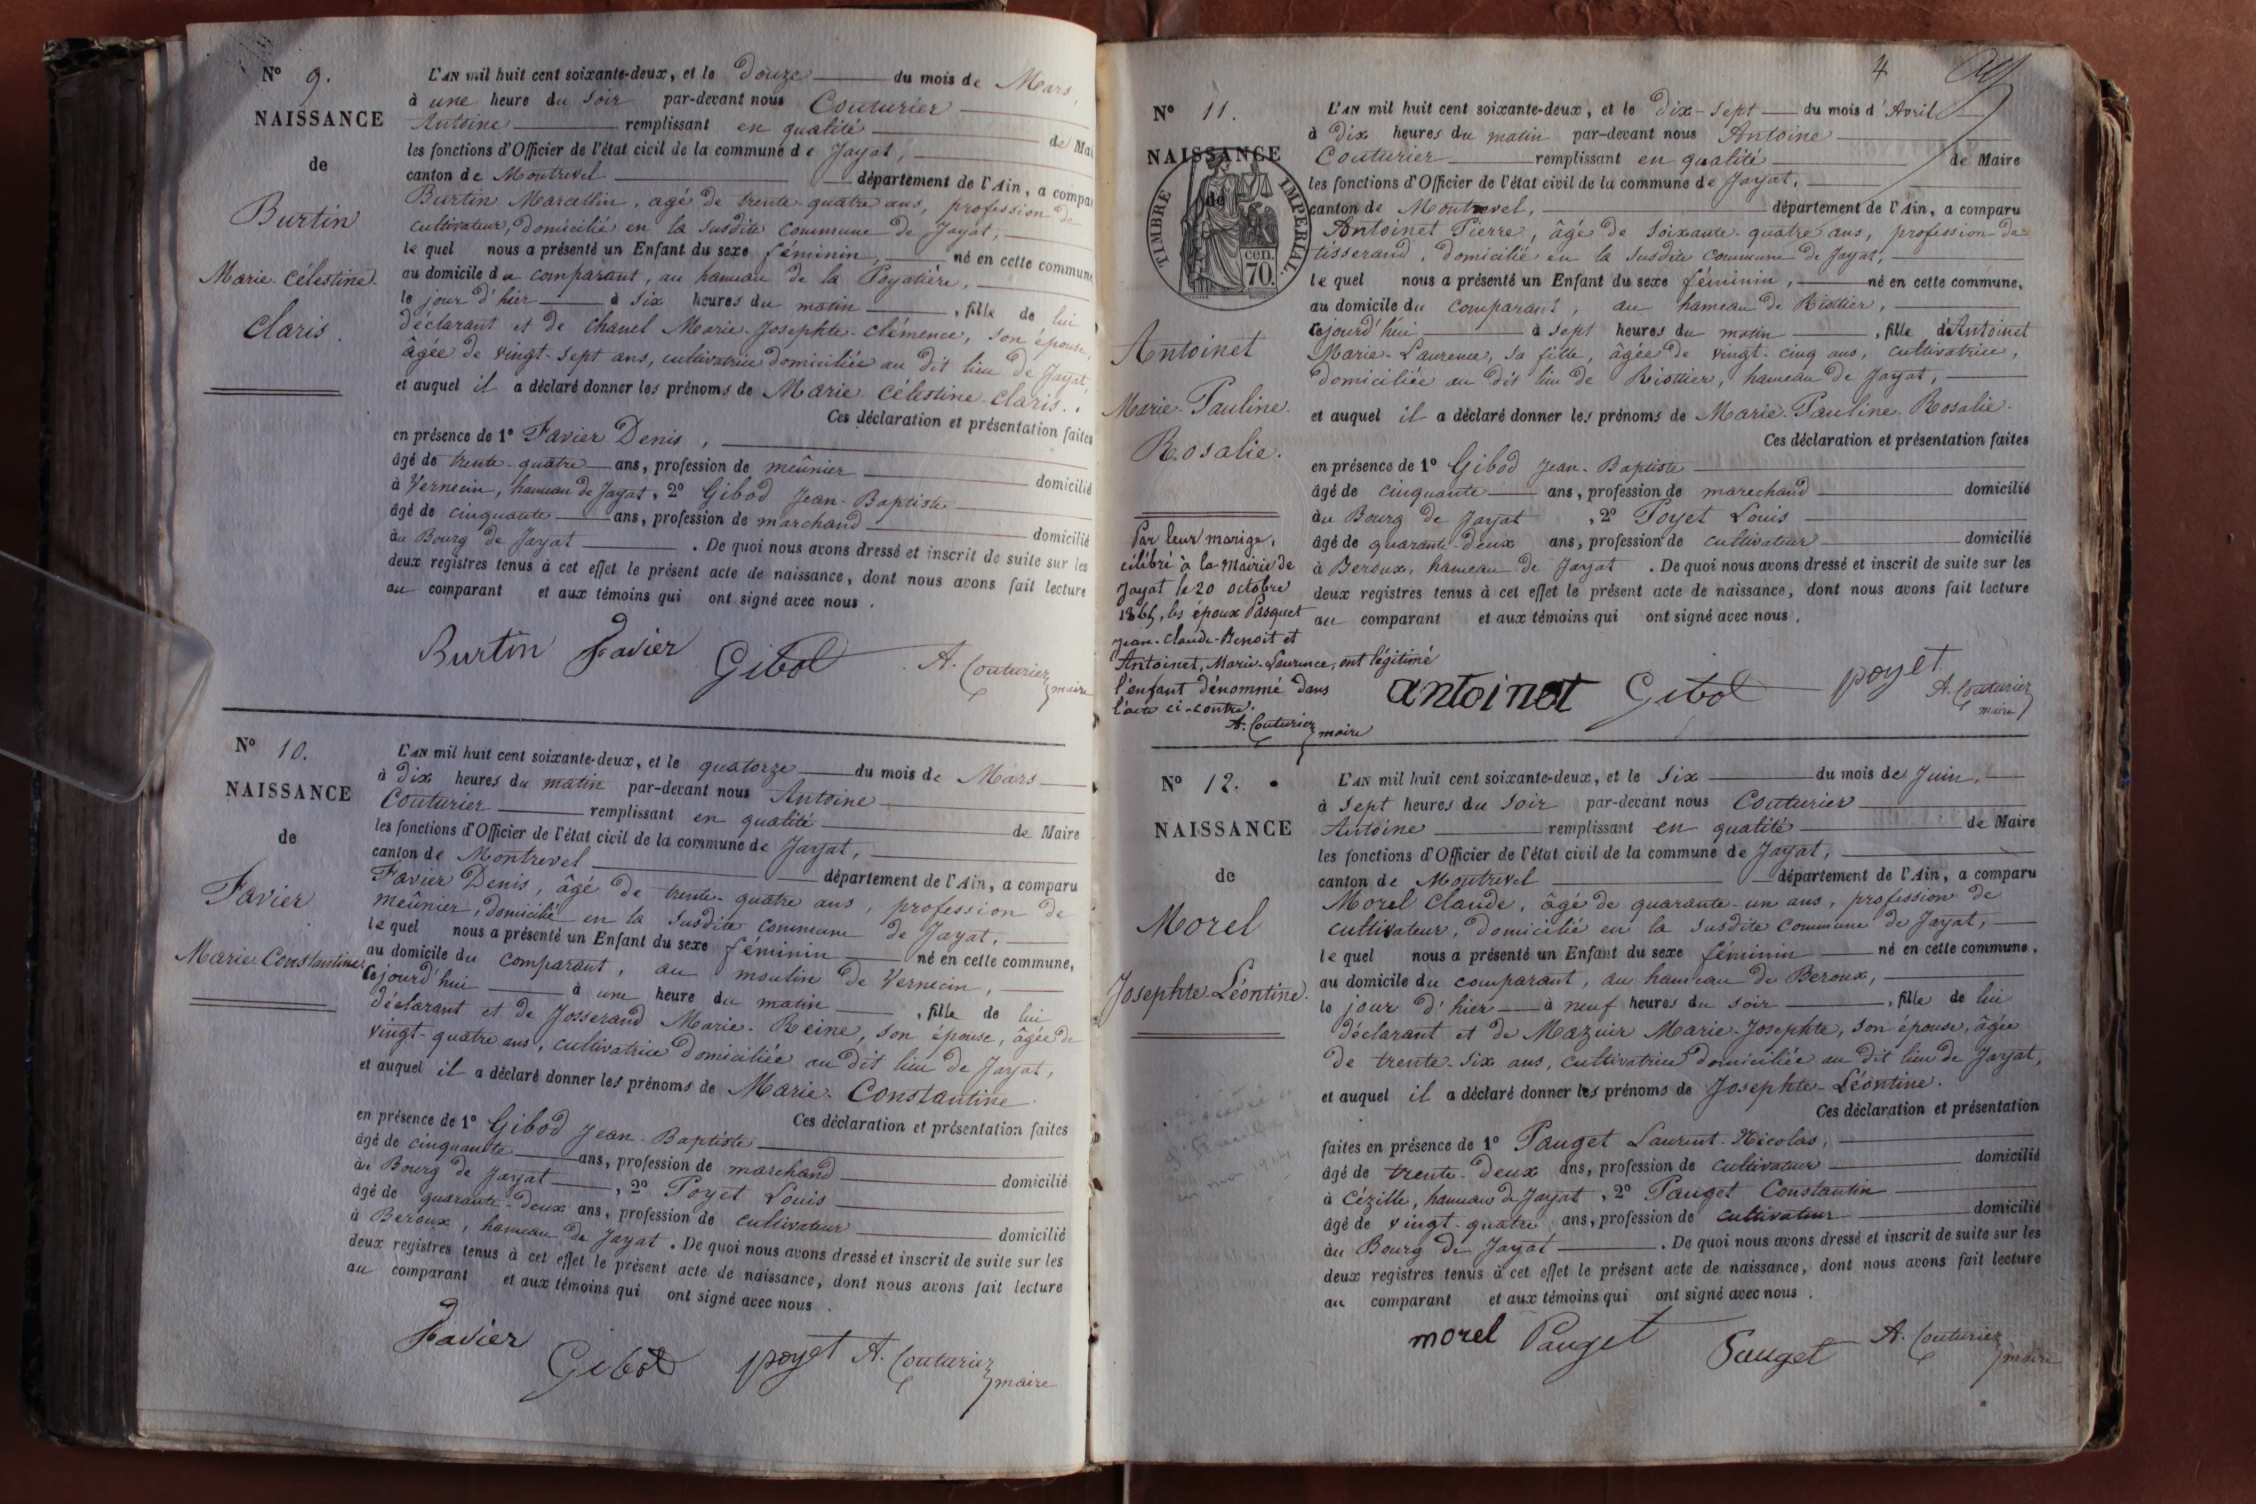 N° 9.
NAISSANCE
de
Burtin
Marie Célestine
Claris.
L'AN mil huit cent soixante-deux, et le douze du mois de Mars,
à une heure du soir par-devant nous Couturier
Antoine remplissant en qualité de Mai
les fonctions d'Officier de l'état civil de la commune de Jayat,
canton de Montrevel département de l'Ain, a compa
Burtin Marcellin, agé de trente-quatre ans, profession de
cultivateur, domicilié en la susdite commune de Jayat,
le quel nous a présenté un Enfant du sexe féminin, né en cette commune
au domicile du comparant, au hameau de la Poyatière,
le jour d'hier à six heures du matin, fille de lui
déclarant et de Chanel Marie-Josephte-Clémence, son épouse,
âgée de vingt-sept ans, cultivatrice domiciliée au dit lieu de Jayat,
et auquel il a déclaré donner les prénoms de Marie-Célestine-Claris.
Ces déclaration et présentation faites
en présence de 1° Favier Denis,
âgé de trente-quatre ans, profession de meûnier domicilié
à Vernecin, hameau de Jayat, 2° Gibod Jean-Baptiste
âgé de cinquante ans, profession de marchand domicilié
au Bourg de Jayat. De quoi nous avons dressé et inscrit de suite sur les
deux registres tenus à cet effet le présent acte de naissance, dont nous avons fait lecture
au comparant et aux témoins qui ont signé avec nous.
Burtin Favier Gibod A. Couturier
maire
N° 10.
NAISSANCE
de
Favier
Marie Constantine
L'AN mil huit cent soixante-deux, et le quatorze du mois de Mars
à dix heures du matin par-devant nous Antoine
Couturier remplissant en qualité de Maire
les fonctions d'Officier de l'état civil de la commune de Jayat,
canton de Montrevel département de l'Ain, a comparu
Favier Denis, âgé de trente-quatre ans, profession de
meûnier, domicilié en la susdite commune de Jayat,
le quel nous a présenté un Enfant du sexe féminin né en cette commune,
au domicile du comparant, au moulin de Vernecin,
cejourd'hui à une heure du matin, fille de lui
déclarant et de Josserand Marie-Reine, son épouse, âgée de
vingt-quatre ans, cultivatrice domiciliée au dit lieu de Jayat,
et auquel il a déclaré donner les prénoms de Marie-Constantine
Ces déclaration et présentation faites
en présence de 1° Gibod Jean-Baptiste
âgé de cinquante ans, profession de marchand domicilié
au Bourg de Jayat, 2° Poyet Louis
âgé de quarante-deux ans, profession de cultivateur domicilié
à Beroux, hameau de Jayat. De quoi nous avons dressé et inscrit de suite sur les
deux registres tenus à cet effet le présent acte de naissance, dont nous avons fait lecture
au comparant et aux témoins qui ont signé avec nous.
Favier Gibod poyet A. Couturier
maire
4
N° 11.
NAISSANCE
de
TIMBRE IMPÉRIAL.
70 cen.
Antoinet
Marie-Pauline
Rosalie.
Par leur mariage,
célébré à la mairie de
Jayat le 20 octobre
1865, les époux Pasquet
Jean-Claude-Benoit et
Antoinet, Marie-Laurence, ont légitimé
l'enfant dénommé dans
l'acte ci-contre.
A. Couturier
maire
L'AN mil huit cent soixante-deux, et le dix-sept du mois d'Avril
à dix heures du matin par-devant nous Antoine
Couturier remplissant en qualité de Maire
les fonctions d'Officier de l'état civil de la commune de Jayat,
canton de Montrevel, département de l'Ain, a comparu
Antoinet Pierre, âgé de soixante-quatre ans, profession de
tisserand, domicilié en la susdite commune de Jayat,
le quel nous a présenté un Enfant du sexe féminin, né en cette commune,
au domicile du comparant, au hameau de Riottier,
cejourd'hui à sept heures du matin, fille d'Antoinet
Marie-Laurence, sa fille, âgée de vingt-cinq ans, cultivatrice,
domiciliée au dit lieu de Riottier, hameau de Jayat,
et auquel il a déclaré donner les prénoms de Marie-Pauline-Rosalie.
Ces déclaration et présentation faites
en présence de 1° Gibod Jean-Baptiste
âgé de cinquante ans, profession de marechand domicilié
au Bourg de Jayat, 2° Poyet Louis
âgé de quarante-deux ans, profession de cultivateur domicilié
à Beroux, hameau de Jayat. De quoi nous avons dressé et inscrit de suite sur les
deux registres tenus à cet effet le présent acte de naissance, dont nous avons fait lecture
au comparant et aux témoins qui ont signé avec nous.
antoinet Gibod poyet
A. Couturier
maire
N° 12.
NAISSANCE
de
Morel
Josephte Léontine.
L'AN mil huit cent soixante-deux, et le six du mois de Juin,
à sept heures du soir par-devant nous Couturier
Antoine remplissant en qualité de Maire
les fonctions d'Officier de l'état civil de la commune de Jayat,
canton de Montrevel département de l'Ain, a comparu
Morel Claude, âgé de quarante-un ans, profession de
cultivateur, domicilié en la susdite commune de Jayat,
le quel nous a présenté un Enfant du sexe féminin né en cette commune,
au domicile du comparant, au hameau de Beroux,
le jour d'hier à neuf heures du soir, fille de lui
déclarant et de Mazuir Marie-Josephte, son épouse, âgée
de trente-six ans, cultivatrice domiciliée au dit lieu de Jayat,
et auquel il a déclaré donner les prénoms de Josephte-Léontine.
Ces déclaration et présentation
faites en présence de 1° Pauget Laurent-Nicolas,
âgé de trente-deux ans, profession de cultivateur domicilié
à Cézille, hameau de Jayat, 2° Pauget Constantin
âgé de vingt-quatre ans, profession de cultivateur domicilié
au Bourg de Jayat. De quoi nous avons dressé et inscrit de suite sur les
deux registres tenus à cet effet le présent acte de naissance, dont nous avons fait lecture
au comparant et aux témoins qui ont signé avec nous.
morel Pauget Pauget A. Couturier
maire